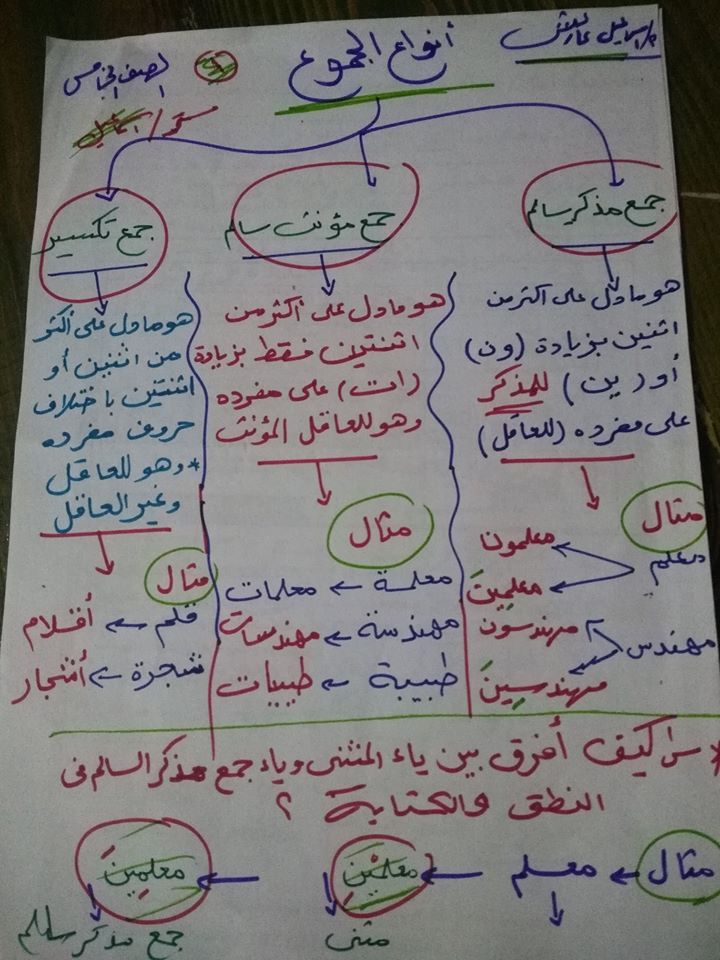 أنواع الجموع
الصف الخامس
١
جمع مذكر سالم
هو ما دل على أكثر من
اثنين بزيادة (ون)
أو (ين) للمذكر
على مفرده (للعاقل)
مثال
معلم
معلمون
معلمينَ
مهندس
مهندسون
مهندسِينَ
جمع مؤنث سالم
هو ما دل على أكثر من
اثنتين فقط بزيادة
(ات) على مفرده
وهو للعاقل المؤنث
مثال
معلمة ← معلمات
مهندسة ← مهندسات
طبيبة ← طبيبات
جمع تكسير
هو ما دل على أكثر
من اثنين أو
اثنتين باختلاف
حروف مفرده
* وهو للعاقل
وغير العاقل
مثال
قلم ← أقلام
شجرة ← أشجار
* س١ كيف أفرق بين ياء المثنى وياء جمع مذكر السالم فى
النطق والكتابة ؟
مثال ← معلم ← معلمَيْنِ ← معلمِينَ
مثنى
جمع مذكر سالم